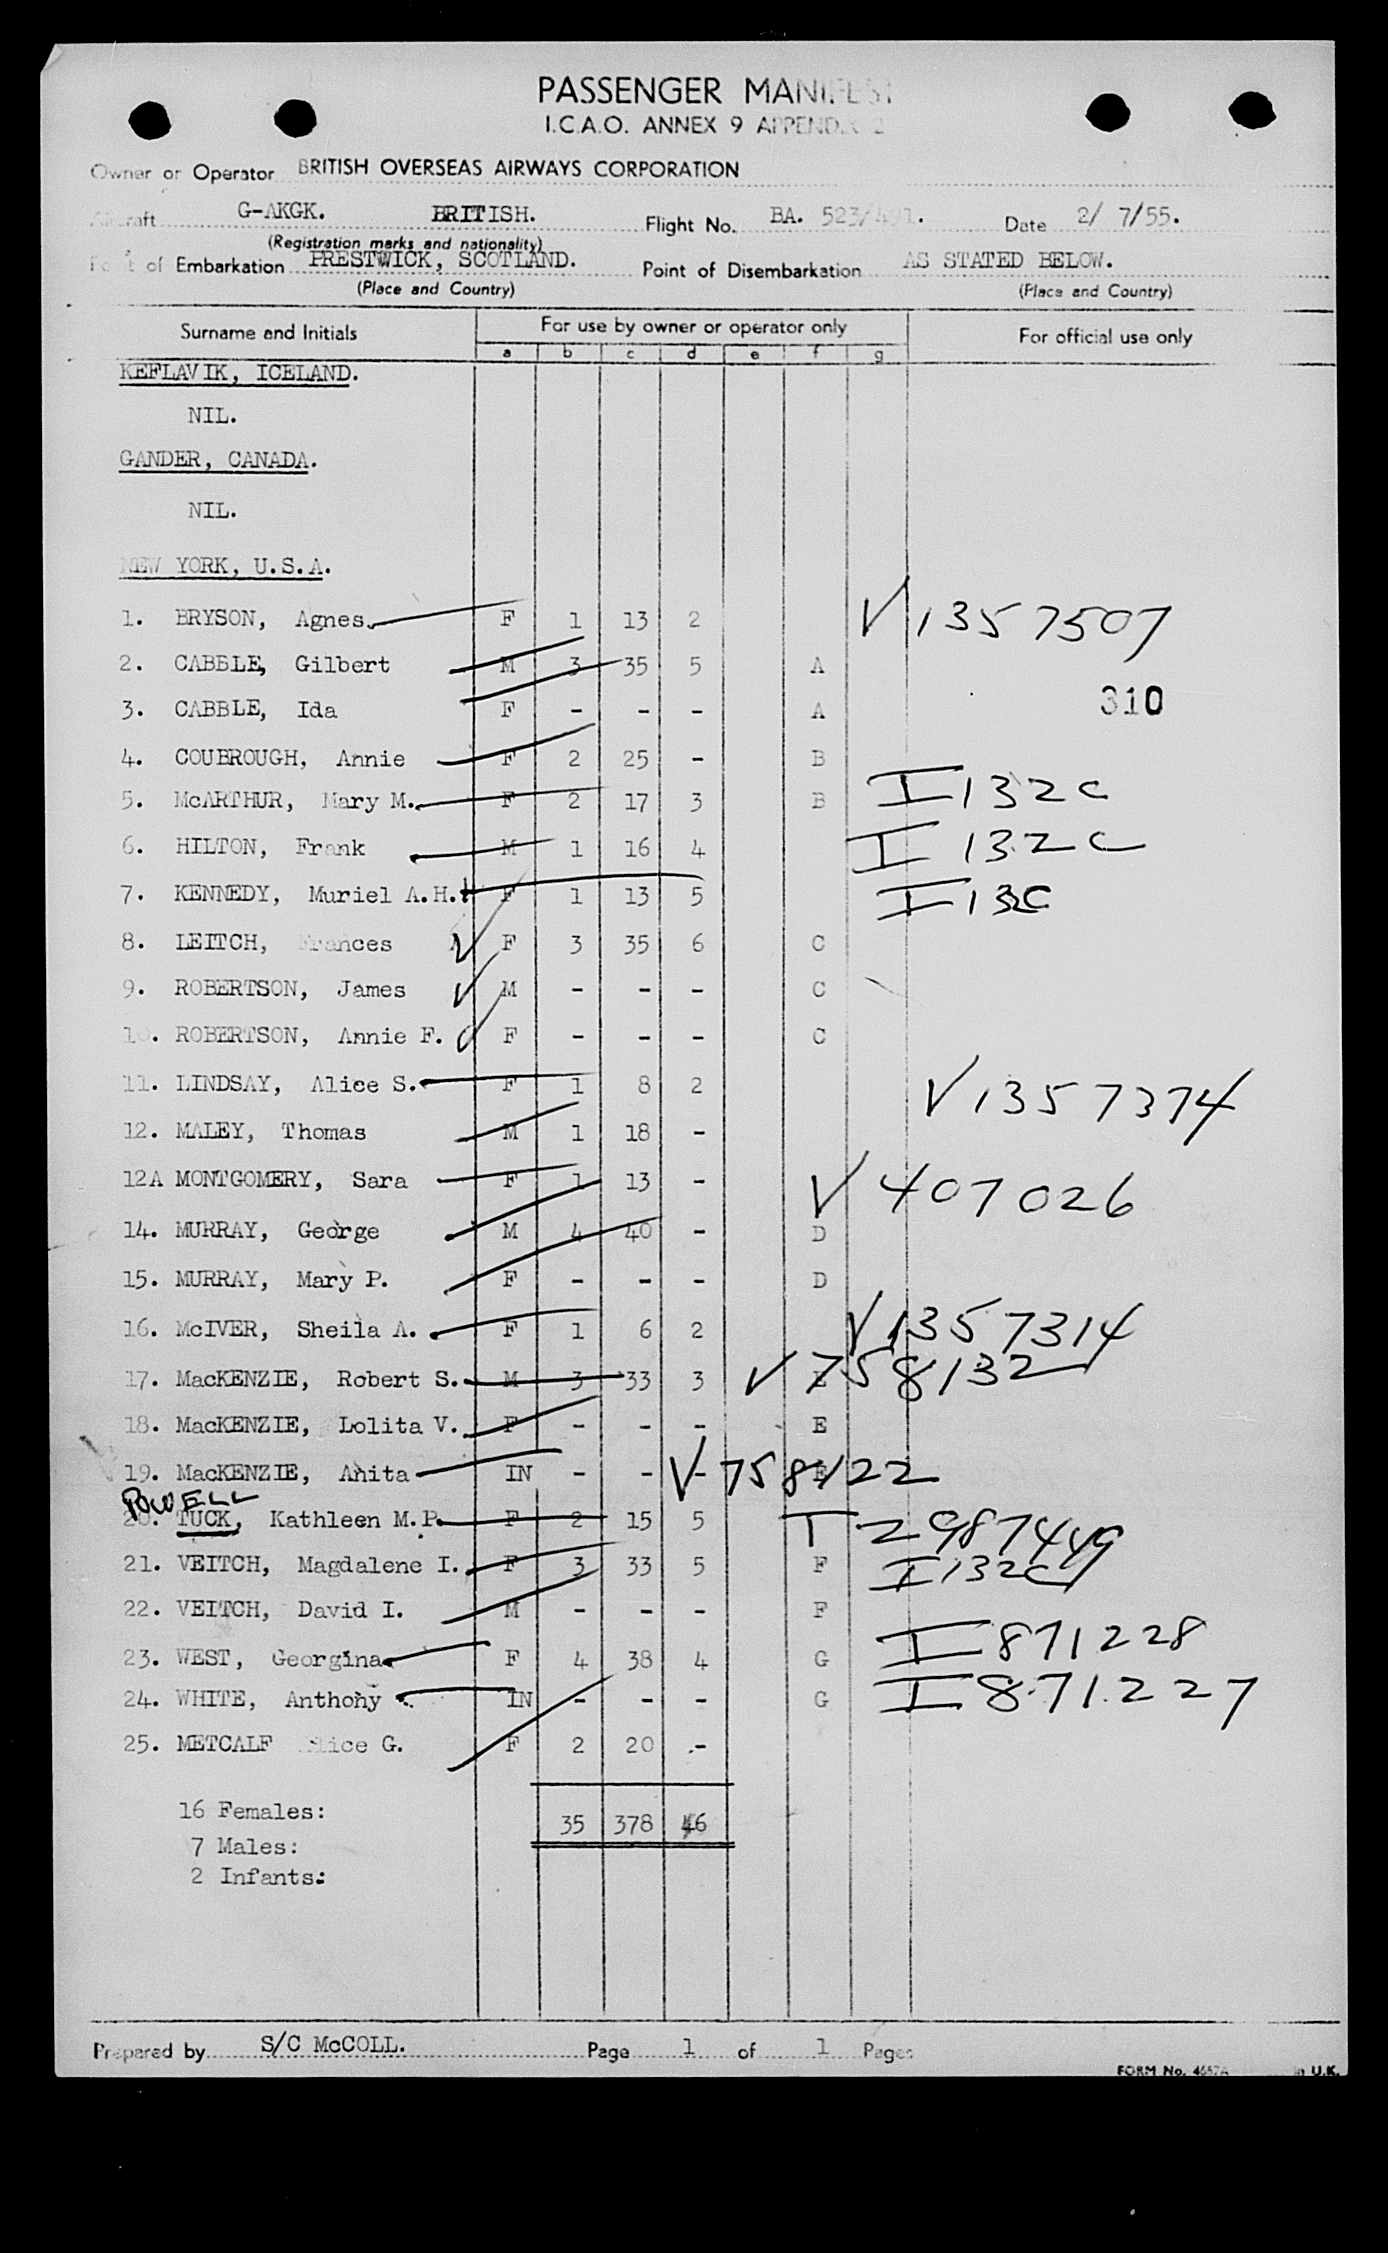 PASSENGER MANIFEST
I.C.A.O. ANNEX 9 APPENDIX 2
Owner or Operator BRITISH OVERSEAS AIRWAYS CORPORATION
Aircraft G-AKGK. BRITISH. Flight No. BA. 523/491. Date 2/ 7/55.
(Registration marks and nationality)
Point of Embarkation PRESTWICK, SCOTLAND. Point of Disembarkation AS STATED BELOW.
(Place and Country) (Place and Country)
Surname and Initials For use by owner or operator only For official use only
a b c d e f g
KEFLAVIK, ICELAND.
NIL.
GANDER, CANADA.
NIL.
NEW YORK, U.S.A.
1. BRYSON, Agnes. F 1 13 2 V 1357507
2. CABBLE, Gilbert M 3 35 5 A
3. CABBLE, Ida F - - - A 310
4. COUBROUGH, Annie F 2 25 - B
5. McARTHUR, Mary M. F 2 17 3 B I 132C
6. HILTON, Frank M 1 16 4 I 132C
7. KENNEDY, Muriel A.H. F 1 13 5 I 132C
8. LEITCH, Frances F 3 35 6 C
9. ROBERTSON, James M - - - C
10. ROBERTSON, Annie F. F - - - C
11. LINDSAY, Alice S. F 1 8 2 V 1357374
12. MALEY, Thomas M 1 18 -
12A MONTGOMERY, Sara F 1 13 - V 407026
14. MURRAY, George M 4 40 - D
15. MURRAY, Mary P. F - - - D
16. McIVER, Sheila A. F 1 6 2 V 1357314
17. MacKENZIE, Robert S. M 3 33 3 E V 758132
18. MacKENZIE, Lolita V. F - - - E
19. MacKENZIE, Anita IN - - - E V 758122
POWELL
20. TUCK, Kathleen M.P. F 2 15 5 T 2987449
21. VEITCH, Magdalene I. F 3 33 5 F I 132C
22. VEITCH, David I. M - - - F
23. WEST, Georgina F 4 38 4 G I 871228
24. WHITE, Anthony IN - - - G I 871227
25. METCALF Alice G. F 2 20 -
16 Females: 35 378 46
7 Males:
2 Infants:
Prepared by S/C McCOLL. Page 1 of 1 Pages
FORM No. in U.K.